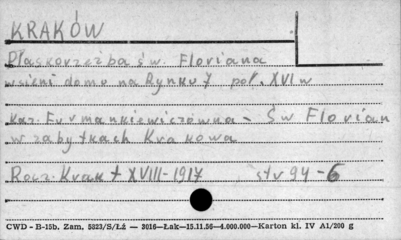 KRAKÓW
Płaskorzeźba św. Floriana
w sieni domu na Rynku 7 poł. XVI w
Kaz. Furmankiewiczówna - Św Florian
w zabytkach Krakowa
Rocz. Krak t XVIII-1917 str 94-6
CWD - B-15b. Zam. 5323/S/Łż — 3016—Łak—15.11.56—4.000.000—Karton kl. IV A1/200 g